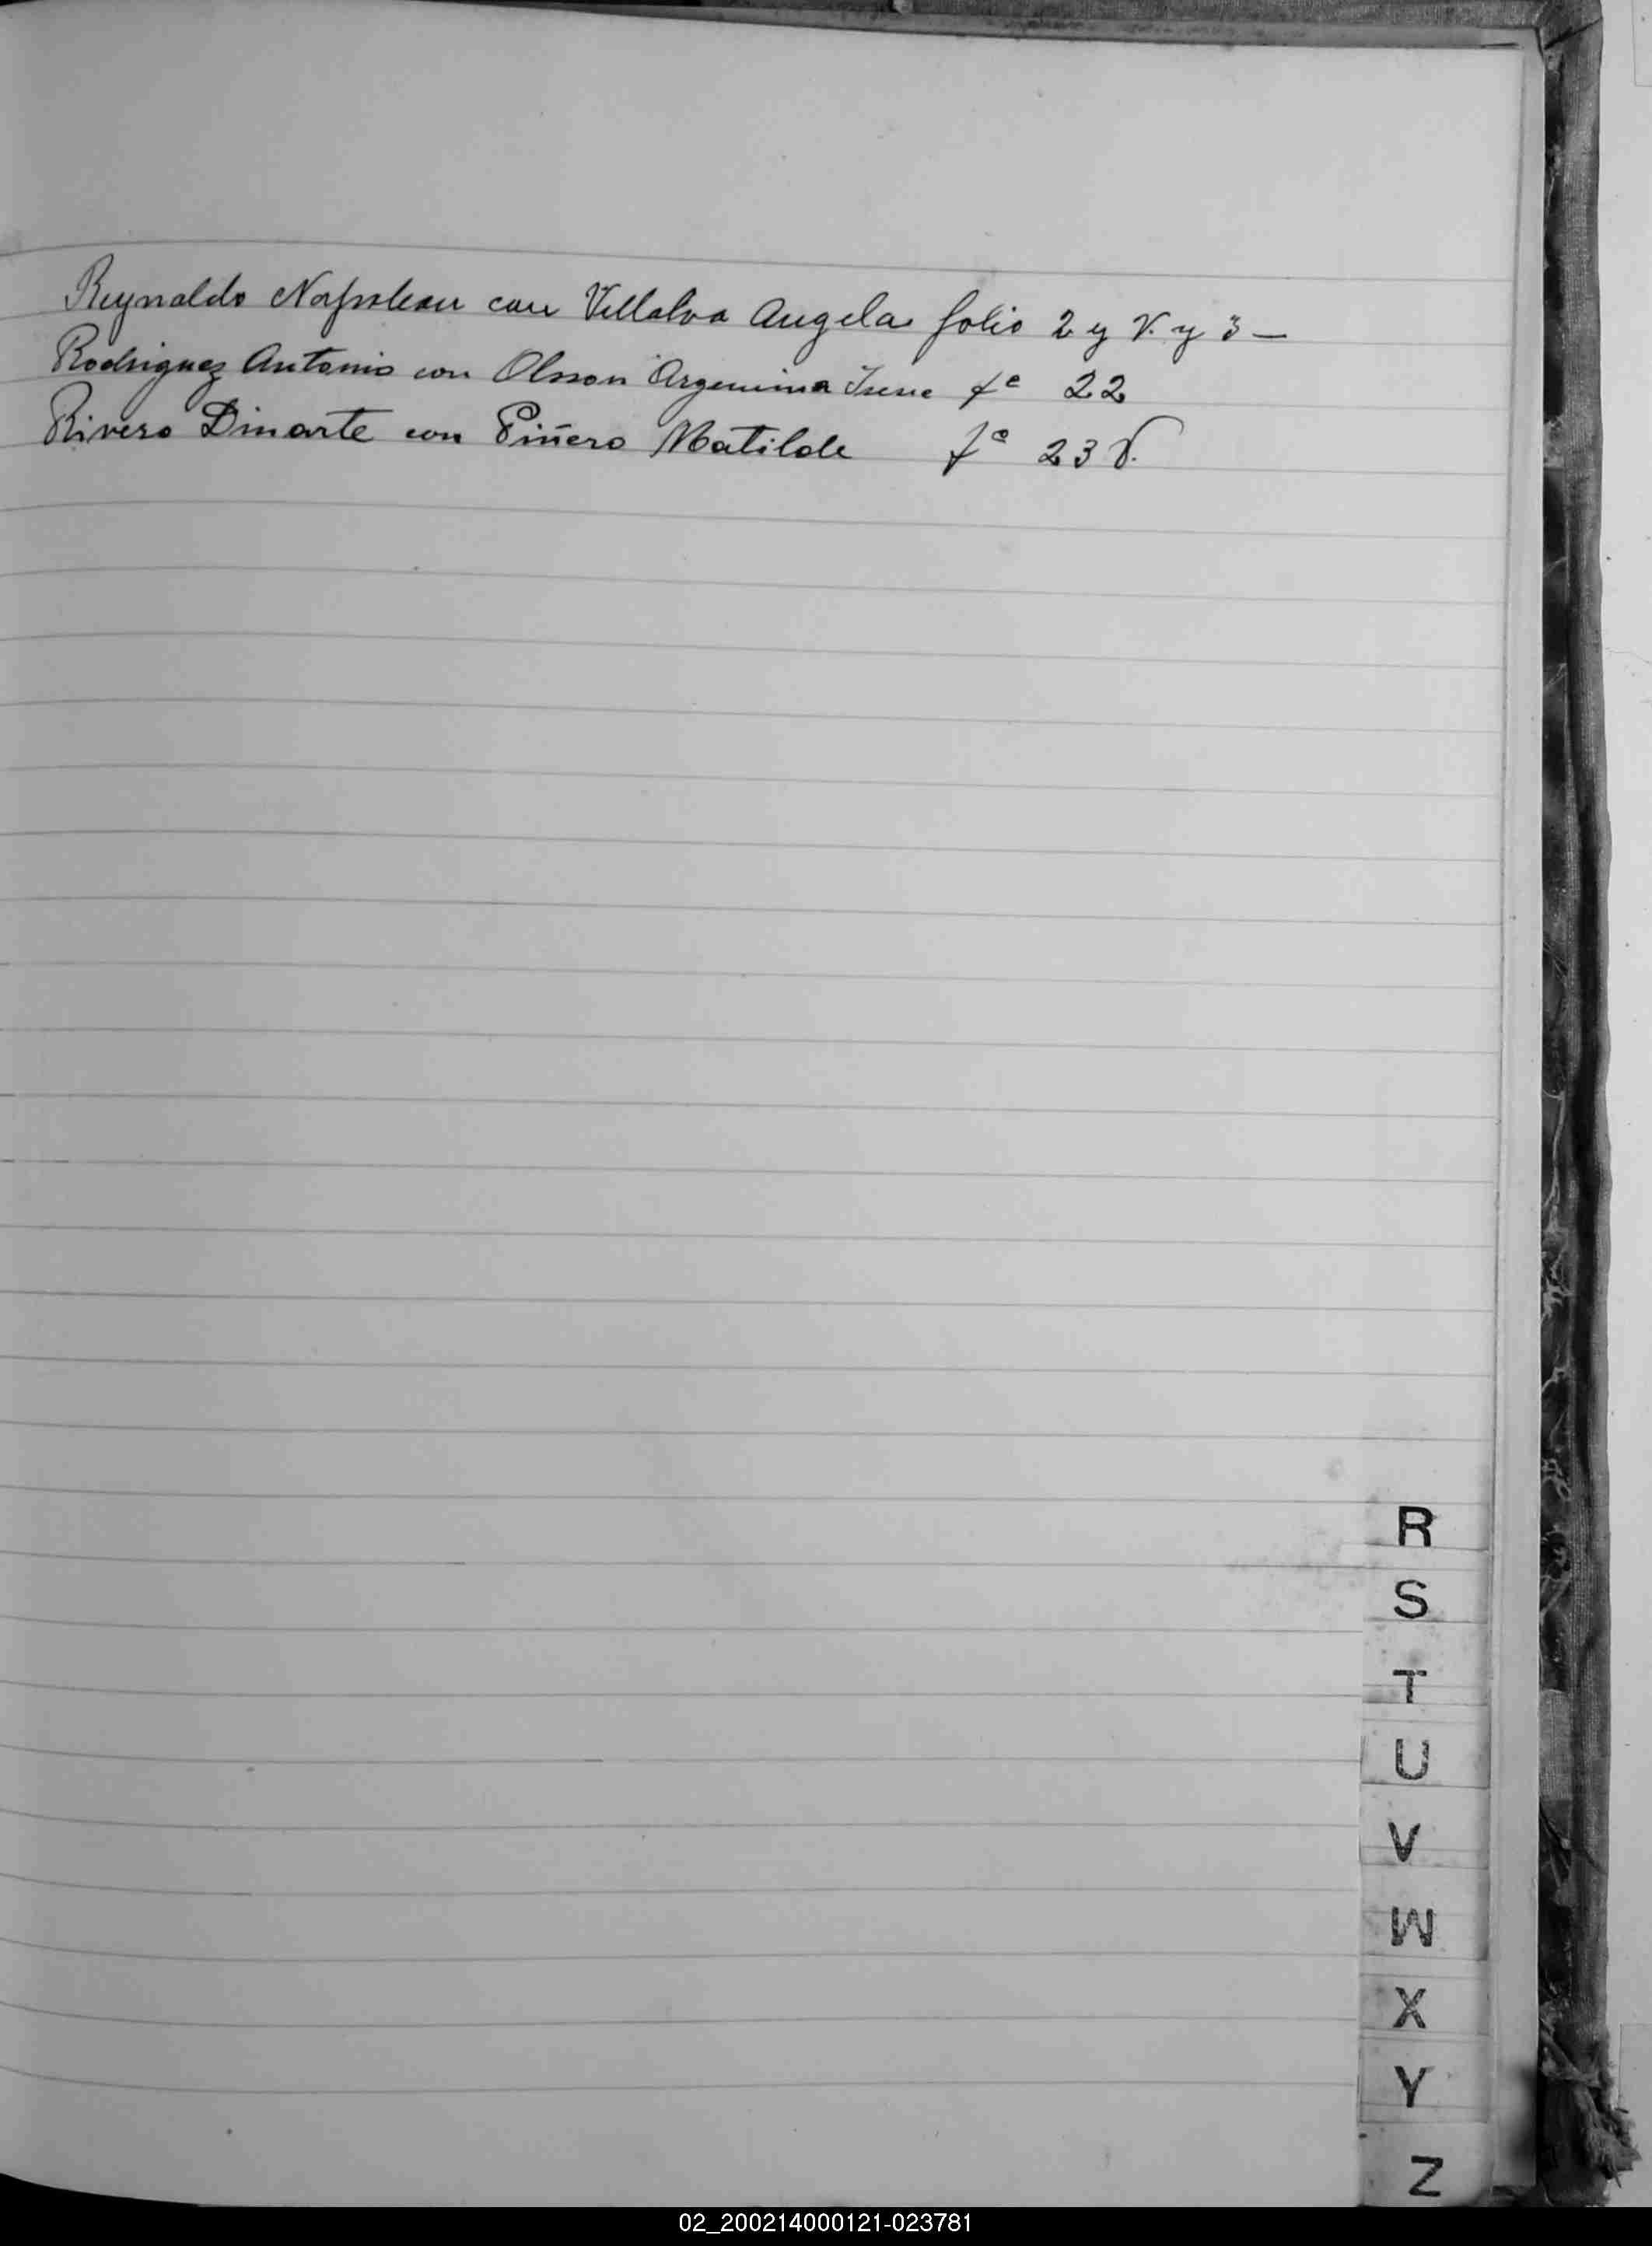 Reynaldo Napoleon con Villalva Angela folio 2 y V. y 3 —
Rodriguez Antonio con Olsson Argentina Irene fº 22
Rivero Dinarte con Piñero Matilde fº 23 V.
R
S
T
U
V
W
X
Y
Z
02_200214000121-023781